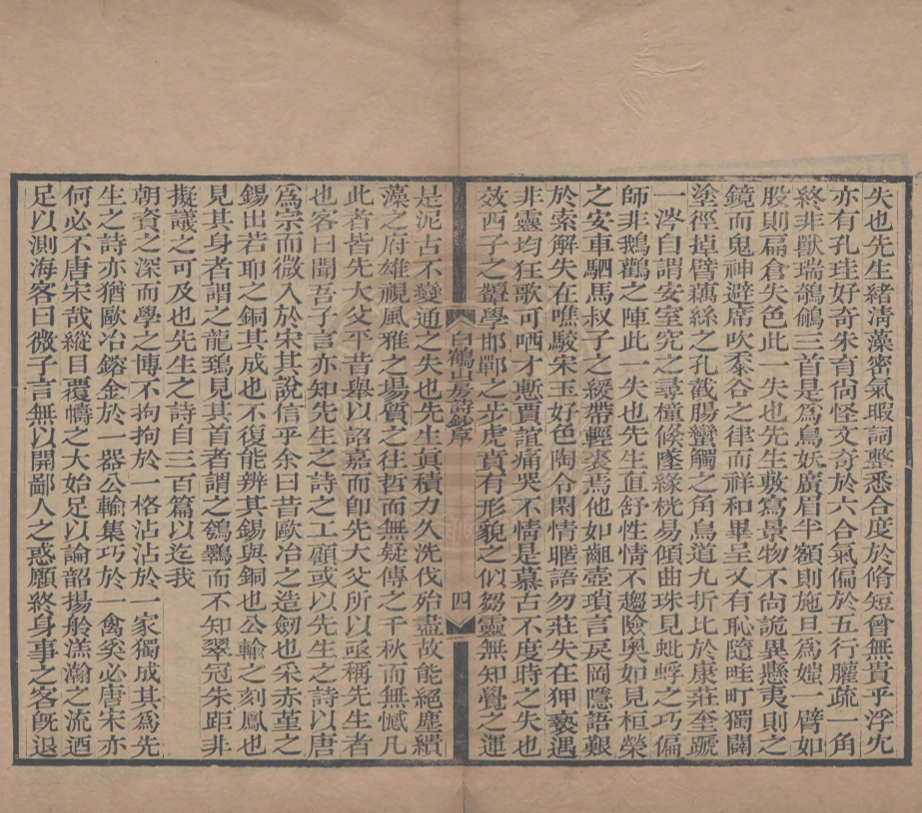 失也先生緒清藻密氣暇詞整悉合度於脩短曾無貴乎浮宂
亦有孔珪好奇朱育尙怪文奇於六合氣偏於五行臛疏一角
終非獸瑞鵠鶬三首是爲鳥妖廣眉半額則施旦爲媸一臂如
股則扁倉失色此一失也先生敷寫景物不尙詭異懸夷則之
鏡而鬼神避席吹黍谷之律而祥和畢呈又有恥隨畦町獨闢
塗徑掉臂藕絲之孔截腸蠻觸之角鳥道九折比於康莊奎蹏
一涔自謂安室究之尋橦候墜緣桄易傾曲珠見蚍蜉之巧偏
師非鵝鸛之陣此一失也先生直舒性情不趨險奧如見桓榮
之安車駟馬叔子之緩帶輕裘焉他如齟壺瑣言戾岡隱語艱
於索解失在噍駿宋玉好色陶令閑情暱語勿莊失在狎褻遇
非靈均狂歌可哂才慙賈誼痛哭不情是慕古不度時之失也
效西子之顰學邯鄲之步虎賁有形貌之似芻靈無知覺之運
白鶴山房詩鈔序
四
是泥古不變通之失也先生眞積力久洗伐殆盡故能絕塵纘
藻之府雄視風雅之場質之往哲而無疑傳之千秋而無憾凡
此者皆先大父平昔舉以詔嘉而卽先大父所以亟稱先生者
也客曰聞吾子言亦知先生之詩之工顧或以先生之詩以唐
爲宗而微入於宋其說信乎余曰昔歐冶之造劒也采赤堇之
錫出若耶之銅其成也不復能辨其錫與銅也公輸之刻鳳也
見其身者謂之龍鵄見其首者謂之鴮鸅而不知翠冠朱距非
擬議之可及也先生之詩自三百篇以迄我
朝資之深而學之博不拘拘於一格沾沾於一家獨成其爲先
生之詩亦猶歐冶鎔金於一器公輸集巧於一禽奚必唐宋亦
何必不唐宋哉縱目覆幬之大始足以論韶揚舲溔瀚之流迺
足以測海客曰微子言無以開鄙人之惑願終身事之客旣退